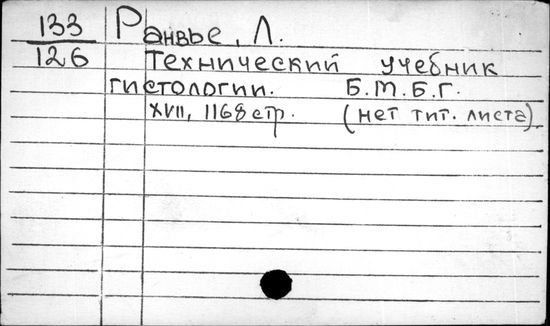 133 Ранвье, Л.
126 Технический учебник
гистологии. Б.М.Б.Г.
XVII, 1168 стр. (нет тит. листа)